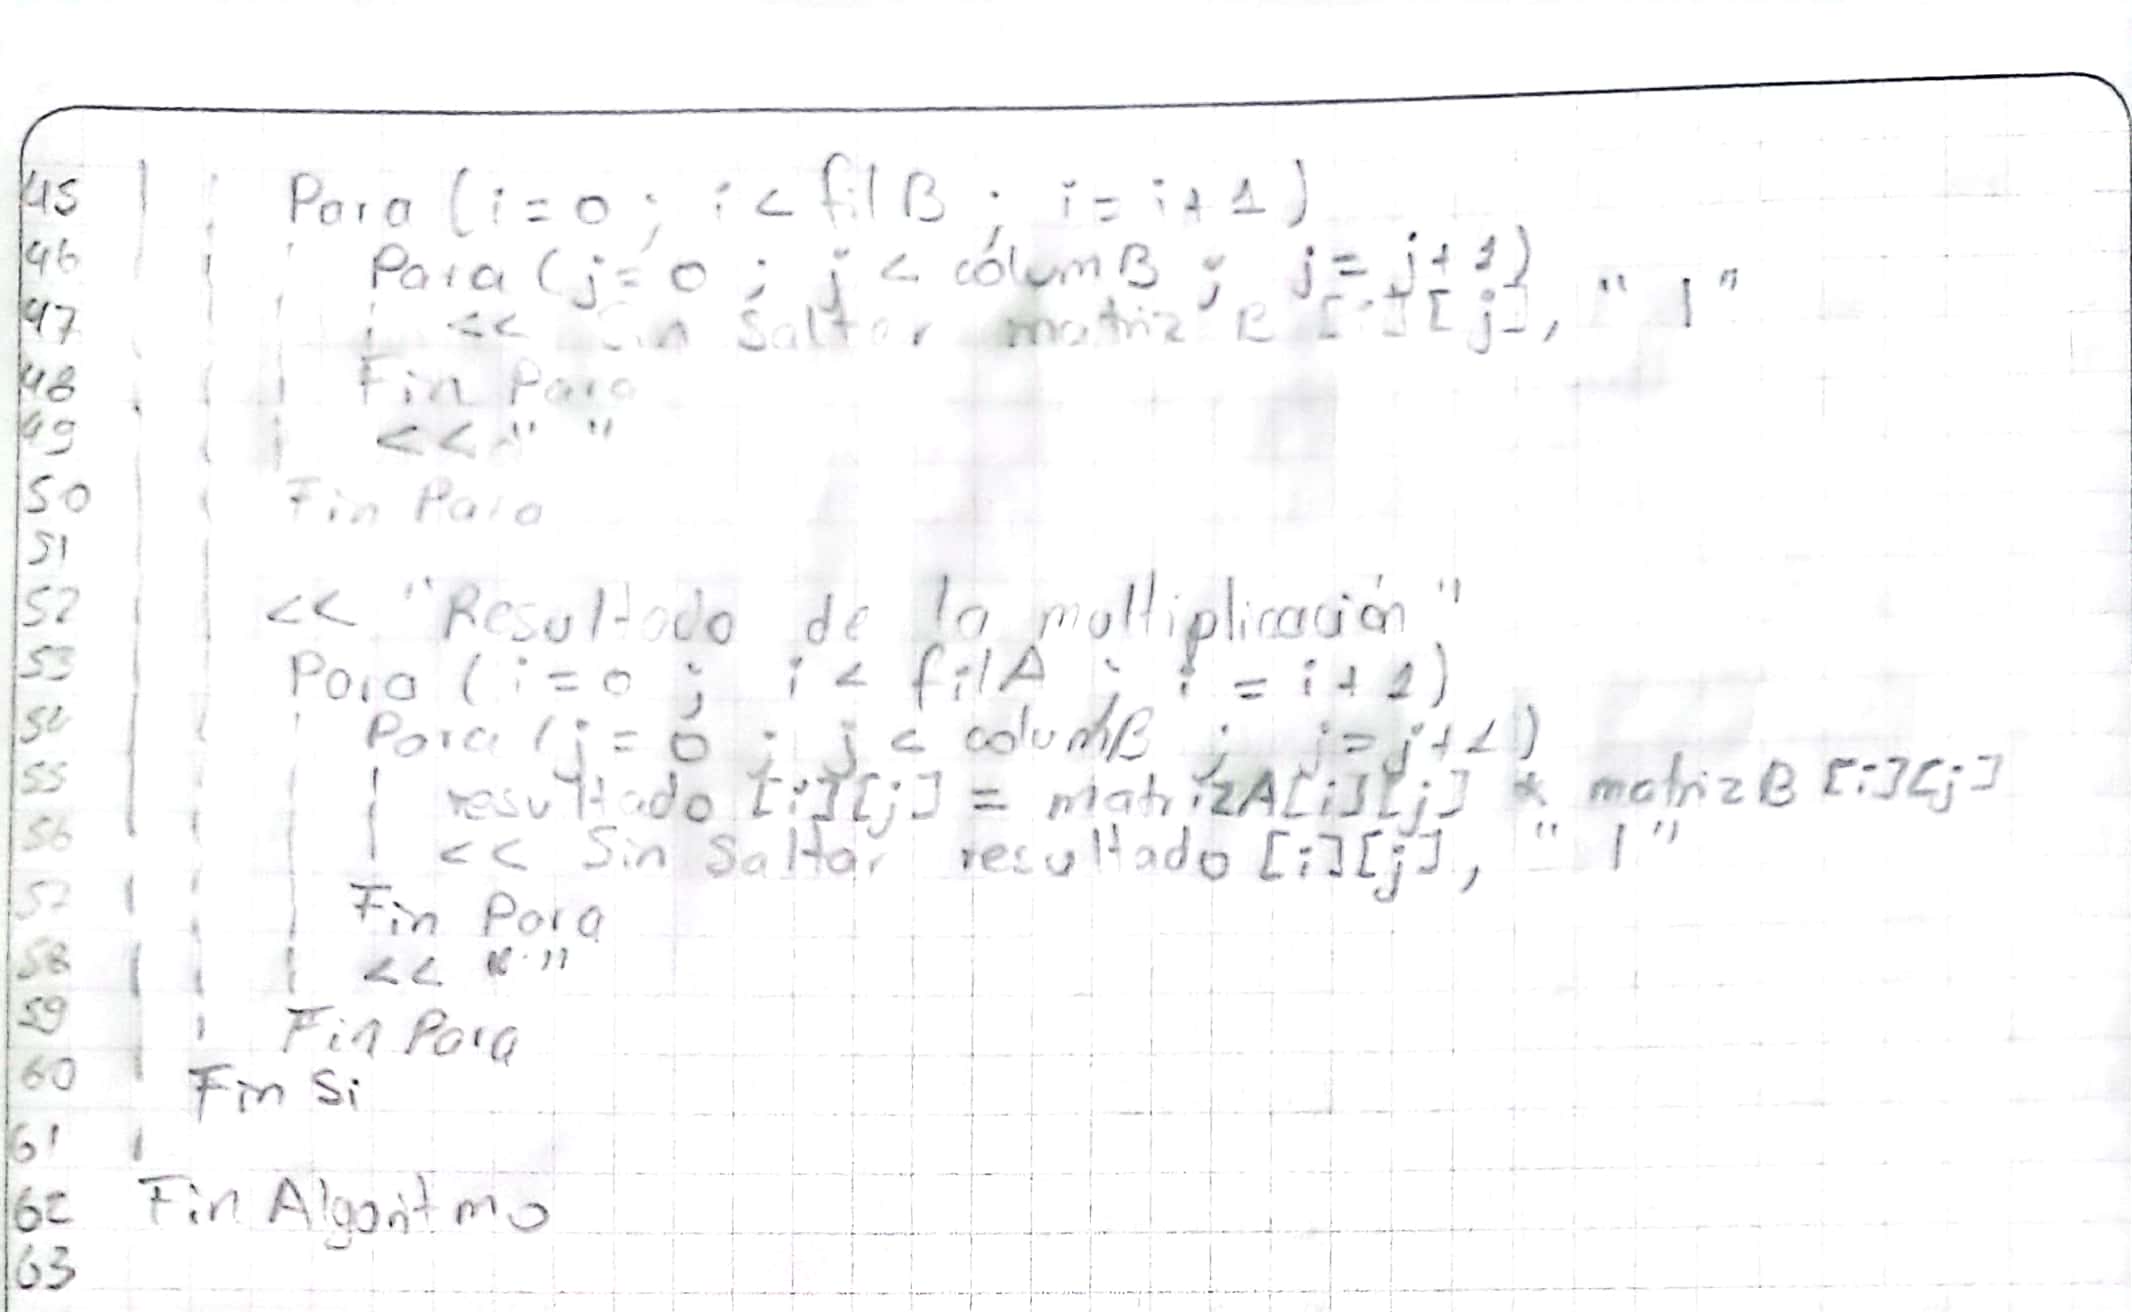 45 Para (i=0 ; i < filB ; i = i+1)
46 Para (j=0 ; j < columB ; j = j+1)
47 << Sin Saltar matriz B [i][j], " | "
48 Fin Para
49 << " "
50 Fin Para
51
52 << "Resultado de la multiplicación"
53 Para (i=0 ; i < filA ; i = i+1)
54 Para (j=0 ; j < columB ; j=j+1)
55 resultado [i][j] = matrizA[i][j] * matrizB [i][j]
56 << Sin Saltar resultado [i][j], " | "
57 Fin Para
58 << " "
59 Fin Para
60 Fin Si
61
62 Fin Algoritmo
63